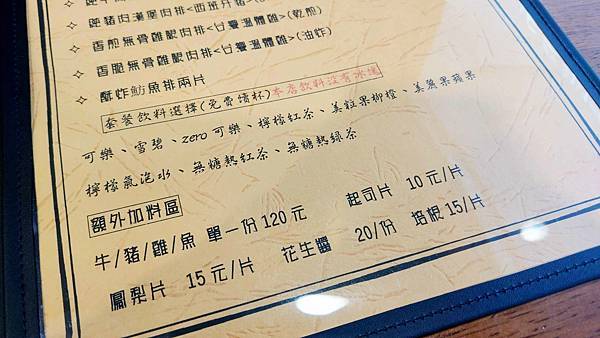 純豬肉漢堡肉排<西班牙豬>(
香煎無骨雞腿肉排<台灣溫體雞>(乾煎)
香脆無骨雞腿肉排<台灣溫體雞>(油炸)
酥炸魴魚排兩片
套餐飲料選擇(免費續杯)本店飲料沒有冰塊
可樂、雪碧、zero可樂、檸檬紅茶、美粒果柳橙、美粒果蘋果
檸檬氣泡水、無糖熱紅茶、無糖熱綠茶
額外加料區
牛/豬/雞/魚 單一份120元 起司片 10元/片
鳳梨片 15元/片 花生醬 20/份 培根15/片